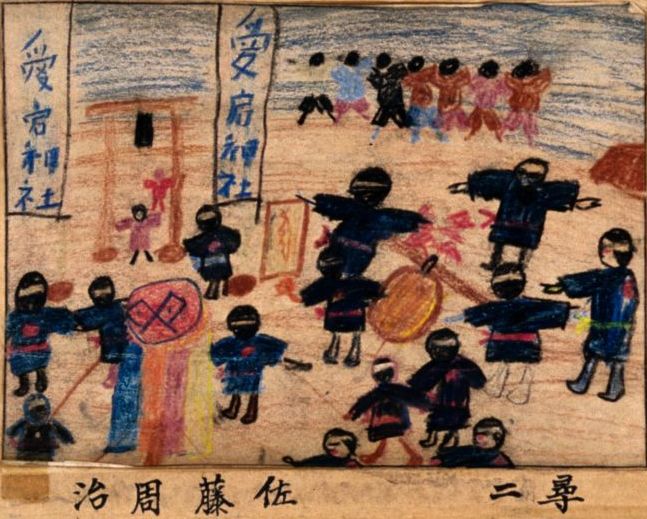 愛宕神社
愛宕神社
尋二 佐藤周治